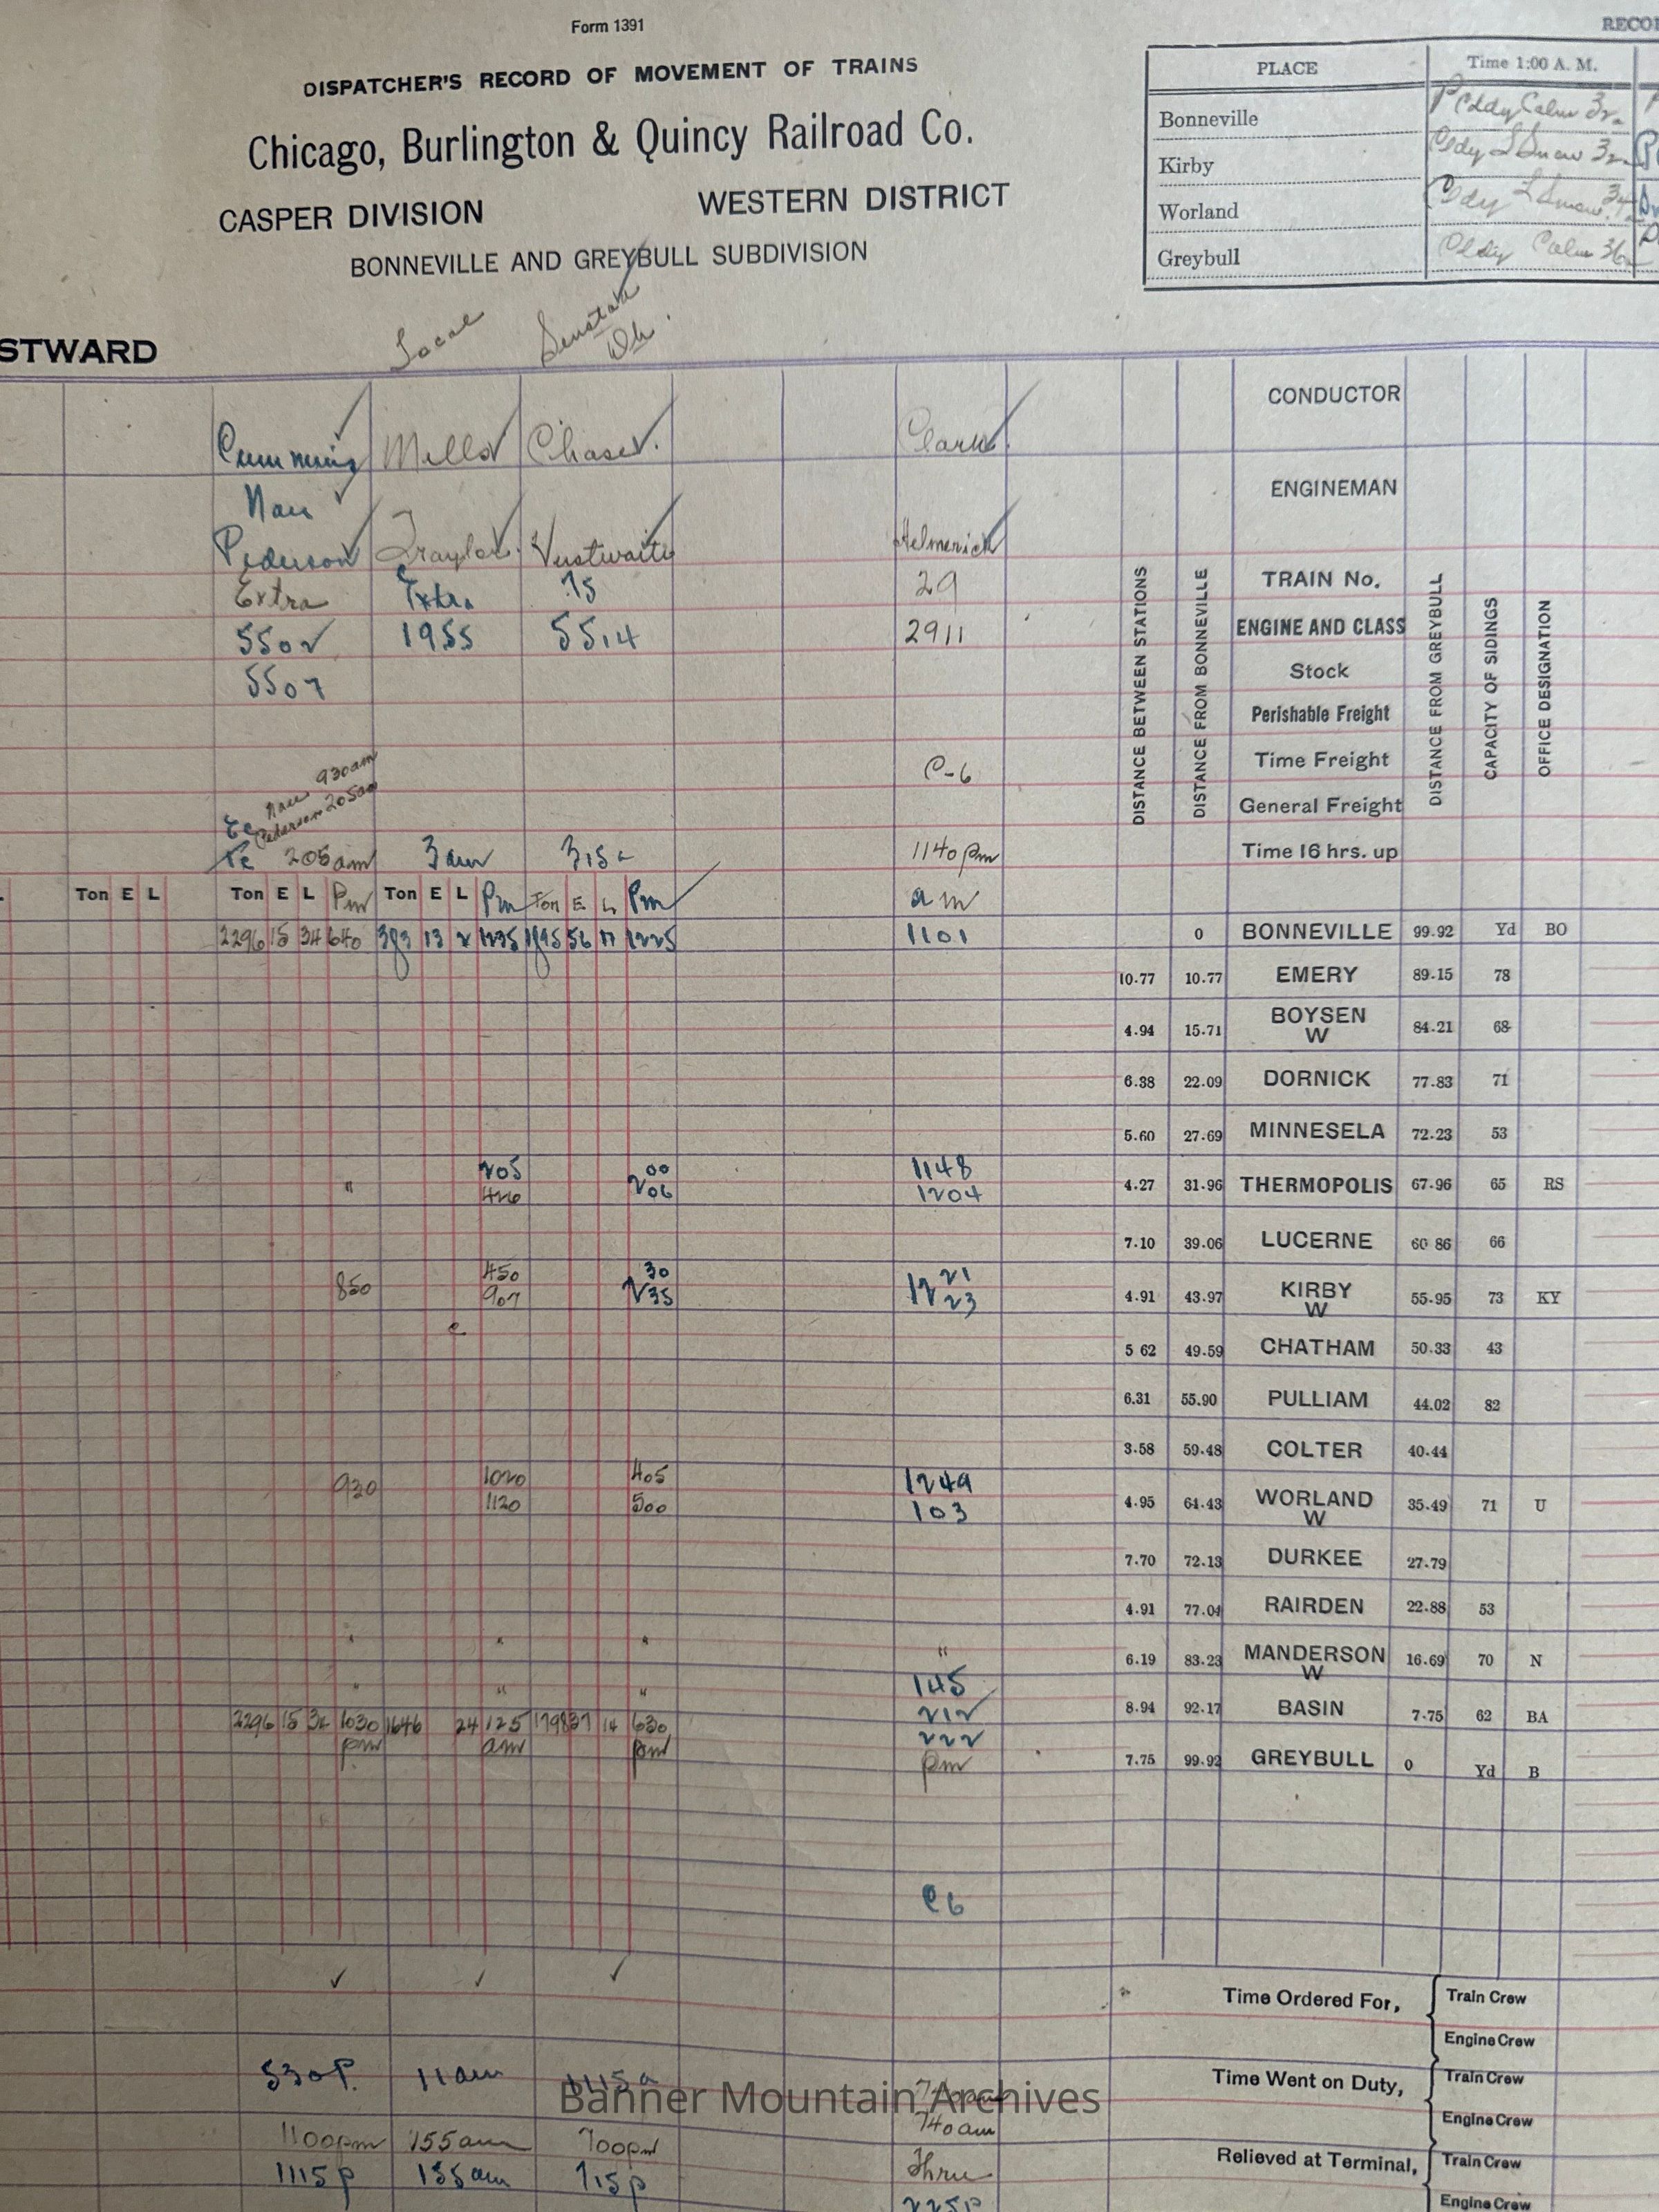 Form 1391
RECO
DISPATCHER'S RECORD OF MOVEMENT OF TRAINS
Chicago, Burlington & Quincy Railroad Co.
CASPER DIVISION WESTERN DISTRICT
BONNEVILLE AND GREYBULL SUBDIVISION
PLACE Time 1:00 A. M.
Bonneville Cldy Calm 32
Kirby Cldy L Snow 32
Worland Cldy L Snow 34
Greybull Cldy Calm 36
STWARD Local
Cumming Mello Chase Clark CONDUCTOR
Nau ENGINEMAN
Pederson Traylor Helmerick
Extra Extra 75 29 TRAIN No.
5502 1955 5514 2911 ENGINE AND CLASS
5507 Stock
Perishable Freight
C-6 Time Freight
General Freight
Nau 930am
Pederson 205am
205am 3am 315a 1140pm Time 16 hrs. up
DISTANCE BETWEEN STATIONS
DISTANCE FROM BONNEVILLE
DISTANCE FROM GREYBULL
CAPACITY OF SIDINGS
OFFICE DESIGNATION
Ton E L Ton E L Pm Ton E L Pm Ton E L Pm am
2296 15 34 640 383 13 2 1235 1895 56 17 1225 1101 0 BONNEVILLE 99.92 Yd BO
10.77 10.77 EMERY 89.15 78
4.94 15.71 BOYSEN 84.21 68
W
6.38 22.09 DORNICK 77.83 71
5.60 27.69 MINNESELA 72.23 53
205 200 1148
" 426 206 1204 4.27 31.96 THERMOPOLIS 67.96 65 RS
7.10 39.06 LUCERNE 60 86 66
850 450 230 1221 4.91 43.97 KIRBY 55.95 73 KY
907 235 1223 W
5 62 49.59 CHATHAM 50.33 43
6.31 55.90 PULLIAM 44.02 82
3.58 59.48 COLTER 40.44
930 1020 405 1249 4.95 64.43 WORLAND 35.49 71 U
1120 500 103 W
7.70 72.13 DURKEE 27.79
4.91 77.04 RAIRDEN 22.88 53
" " " " 6.19 83.23 MANDERSON 16.69 70 N
W
" " " 145 8.94 92.17 BASIN 7.75 62 BA
2296 15 34 1030 1646 24 125 1798 37 14 630 212
222
pm am pm pm 7.75 99.92 GREYBULL 0 Yd B
C6
Time Ordered For, Train Crew
Engine Crew
530P. 11am 1115a Time Went on Duty, Train Crew
740am Engine Crew
1100pm 155am 700pm Thru Relieved at Terminal, Train Crew
1115p 155am 715p 225P Engine Crew
Banner Mountain Archives